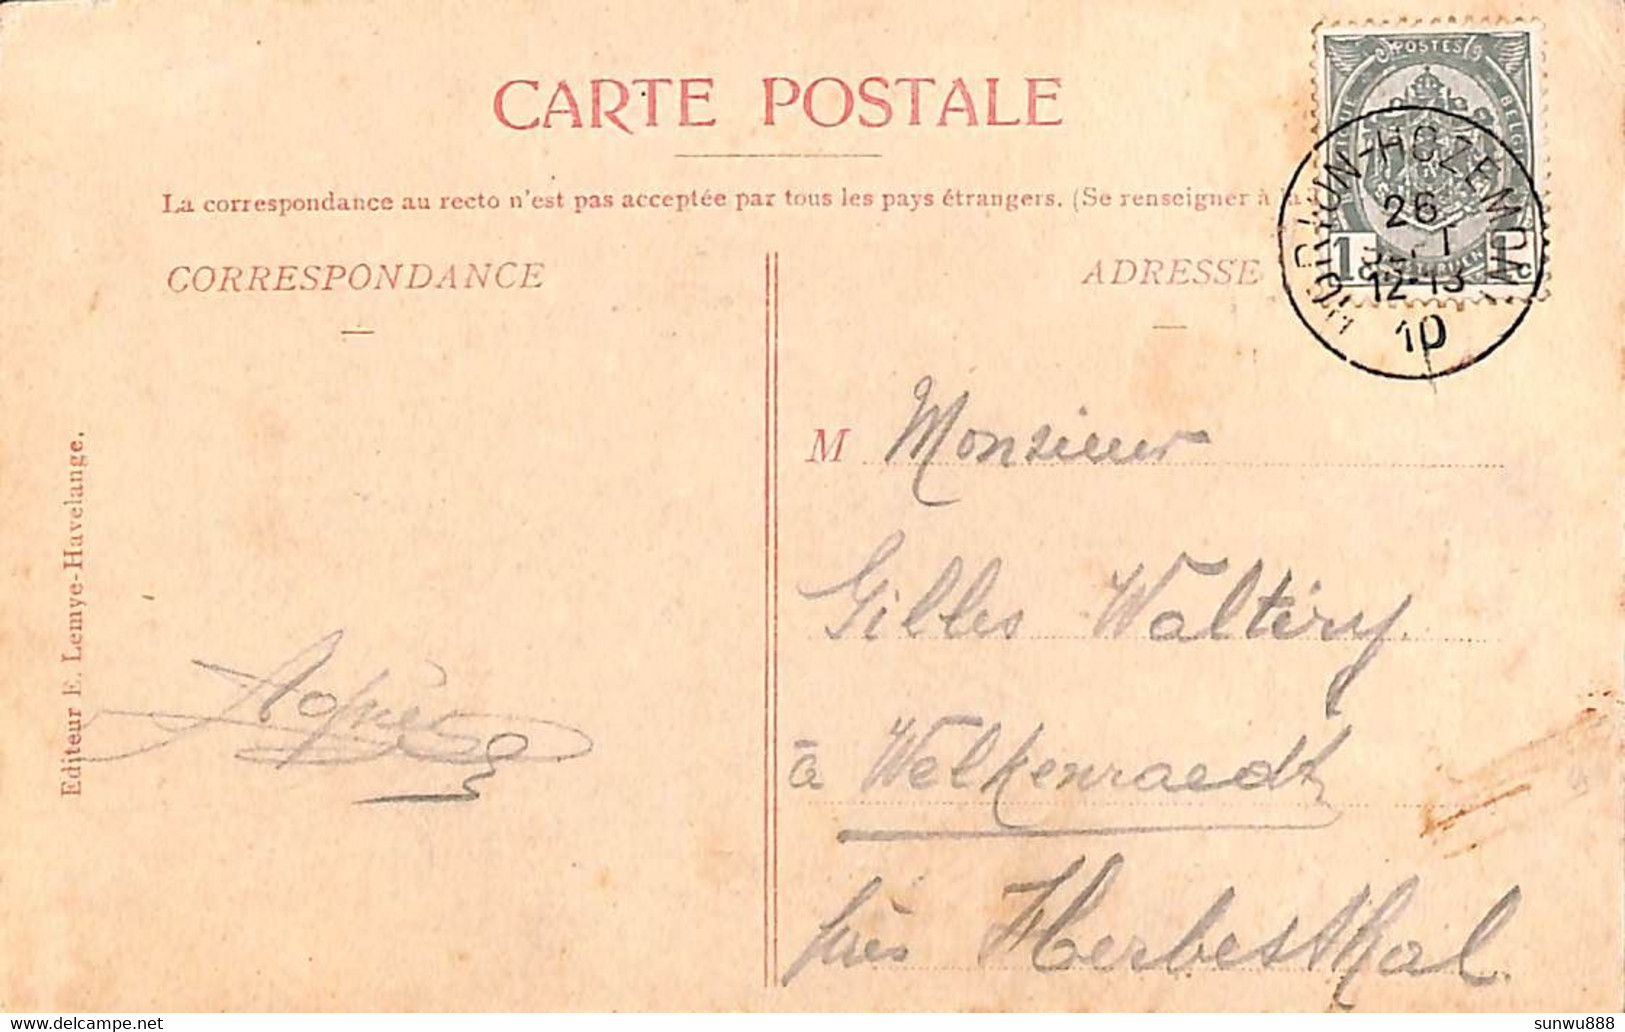 CARTE POSTALE
La correspondance au recto n'est pas acceptée par tous les pays étrangers. (Se renseigner à la
CORRESPONDANCE
ADRESSE
POSTES
1
1c
HOZEMONT
26
12-13
10
M Monsieur
Gilles Waltéry.
à Welkenraedt
près Herbesthal.
Agnès
Editeur E. Lemye-Havelange.
sunwu888